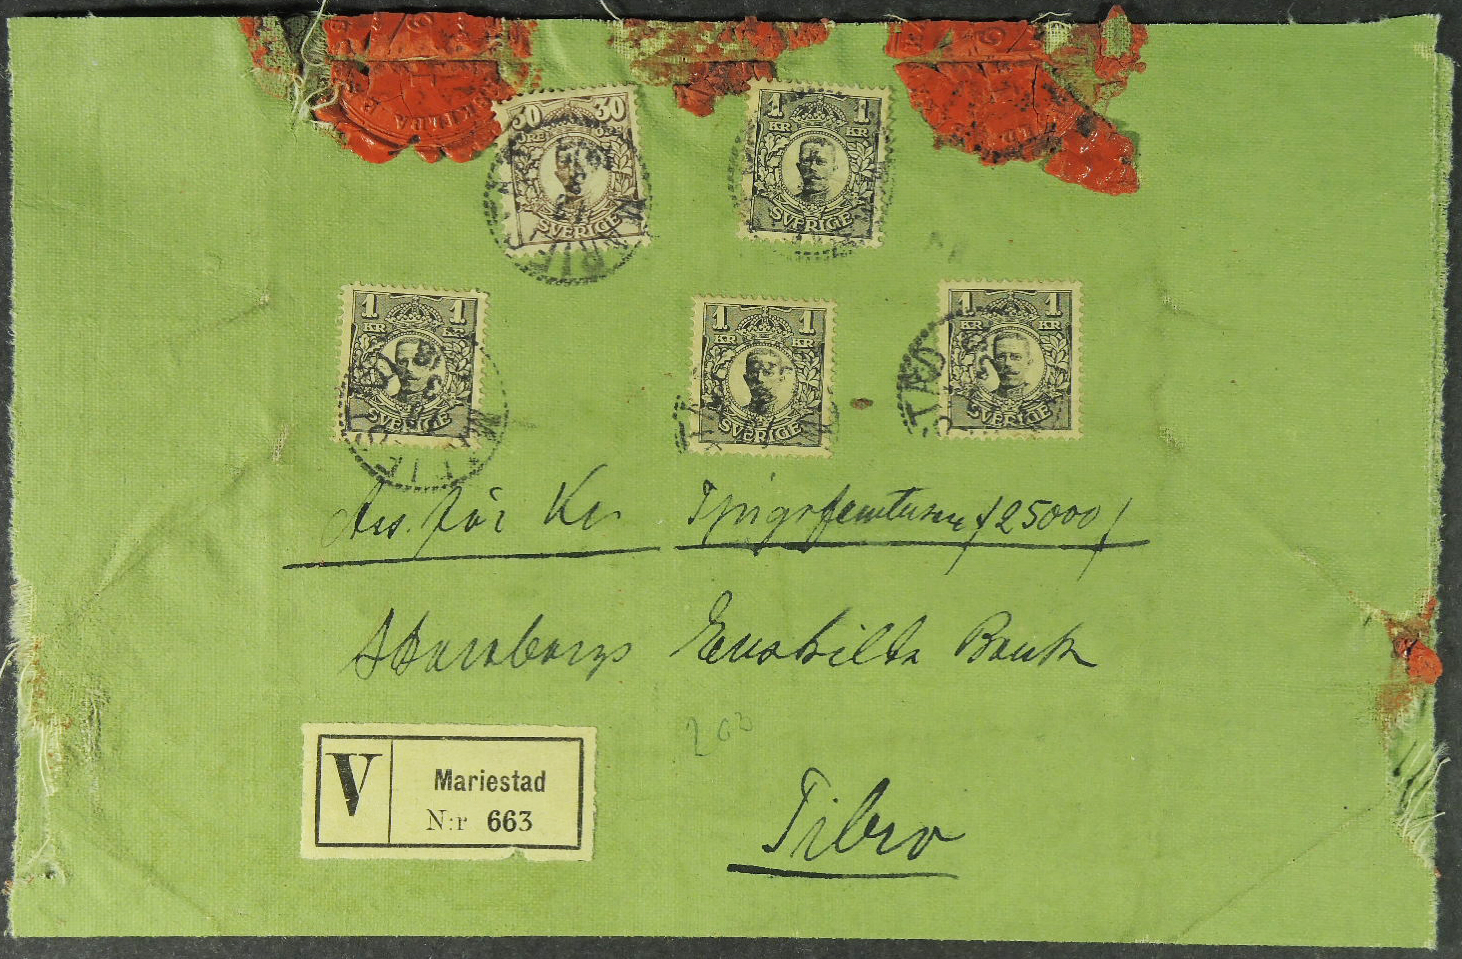 30 30
SVERIGE
1 KR 1 KR
SVERIGE
1 KR 1 KR
SVERIGE
MARIESTAD
1 KR 1 KR
SVERIGE
1 KR 1 KR
SVERIGE
STAD
Ass. för Kr Tjugofemtusen /25000/
Skaraborgs Enskilda Bank
203
V Mariestad
N:r 663
Tibro